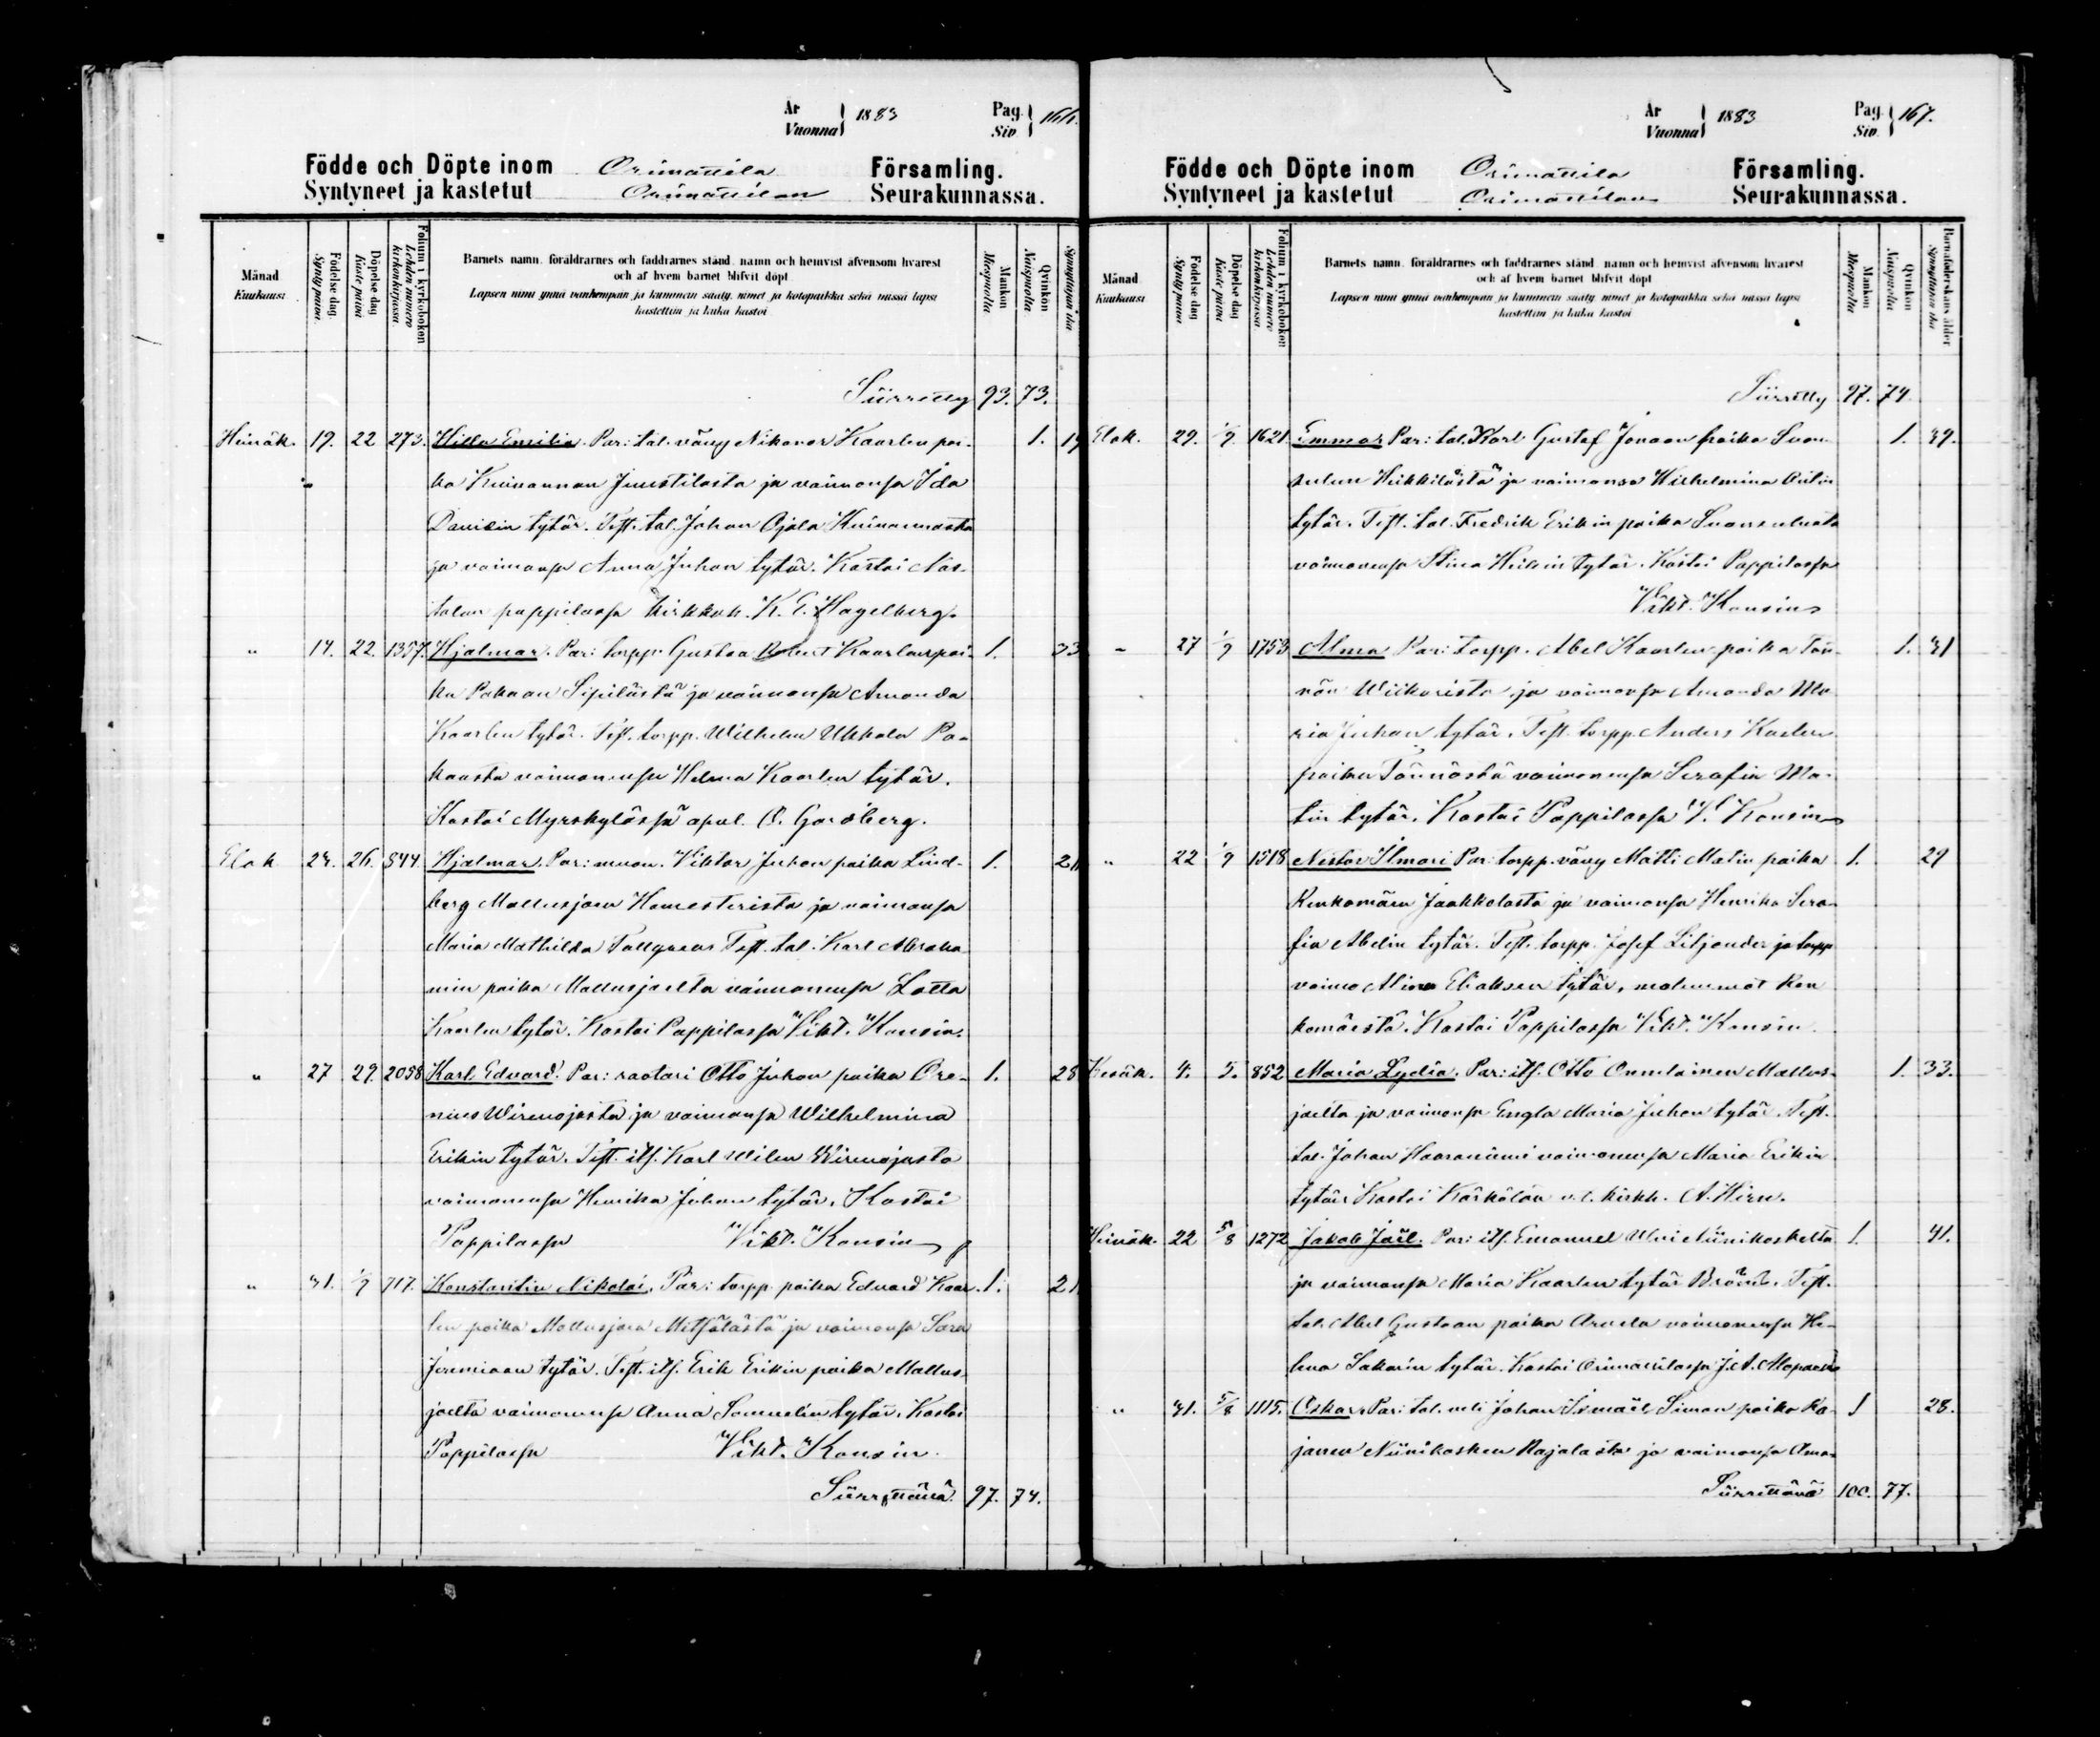 År
Vuonna } 1883
Pag.
Siv. } 166.
Födde och Döpte inom Orimattila Församling.
Syntyneet ja kastetut Orimattilan Seurakunnassa.
Månad
Kuukausi
Födelse dag.
Synty päivä.
Döpelse dag
Kaste päivä
Folium i kyrkoboken
Lehden numero kirkonkirjassa
Barnets namn, föräldrarnes och faddrarnes stånd, namn och hemvist äfvensom hvarest
och af hvem barnet blifvit döpt
Lapsen nimi ynnä vanhempain ja kummein sääty, nimet ja kotopaikka sekä missä lapsi
kastettiin ja kuka kastoi
Mankön
Miespuolta
Qvinkön
Naispuolta.
Synnyttäjän ikä
Siirretty 93. 73.
Heinäk. 19. 22 273. Hilla Emilia. Par: tal. vävy Nikanor Kaarlen poi- 1. 19
ka Kuivannon Juustilasta ja vaimonsa Ida
Davidin tytär. Test. tal. Johan Ojala Kuivannosta
ja vaimonsa Anna Juhan tytär. Kastoi Nas-
tolan pappilassa kirkkoh. K. E. Hagelberg.
" 14. 22. 1357. Hjalmar. Par: torpp. Gustaa Robert Kaarlen poi- 1. 33
ka Pakaan Sipilästä ja vaimonsa Amanda
Kaarlen tytär. Test. torpp. Wilhelm Ukkola Pa-
kaasta vaimonensa Helma Kaarlen tytär.
Kastoi Myrskylässä apul. O. Gardberg.
Elok 24. 26. 844. Hjalmar. Par: muon. Viktor Juhan poika Lind- 1. 21
berg Mallusjoen Hemesterista ja vaimonsa
Maria Mathilda Tallgren Test. tal. Karl Abraha-
min poika Mallusjoelta vaimonensa Lotta
Kaarlen tytär. Kastoi Pappilassa Vikt. Konsin.
" 27 29. 2058 Karl Edvard. Par: raatari Otto Juhan poika Ore- 1. 28
nius Wirenojasta ja vaimonsa Wilhelmina
Erikin tytär. Test. its. Karl Wilen Wirenojasta
vaimonensa Henrika Juhan tytär. Kastoi
Pappilassa Vikt. Konsin
" 31. 1/9 717. Konstantin Nikolai. Par: torpp. poika Edvard Kaar- 1. 21
len poika Mallusjoen Mithälästä ja vaimonsa Sara
Jeremiaan tytär. Test. its. Erik Erikin poika Mallus-
joelta vaimonensa Anna Samuelin tytär. Kastoi
Pappilassa Vikt. Konsin.
Siirrettävä 97. 74.
År
Vuonna } 1883
Pag.
Siv. } 167.
Födde och Döpte inom Orimattila Församling.
Syntyneet ja kastetut Orimattilan Seurakunnassa.
Månad
Kuukausi
Födelse dag
Synty päivä
Döpelse dag
Kaste päivä
Folium i kyrkoboken
Lehden numero kirkonkirjassa
Barnets namn, föräldrarnes och faddrarnes stånd, namn och hemvist äfvensom hvarest
och af hvem barnet blifvit döpt
Lapsen nimi ynnä vanhempain ja kummein sääty, nimet ja kotopaikka sekä missä lapsi
kastettiin ja kuka kastoi
Mankön
Miespuolta
Qvinkön
Naispuolta
Barnaföderskans ålder
Synnyttäjän ikä
Siirretty 97. 74.
Elok. 29. 1/9. 1621 Emma Par: tal. Karl Gustaf Jonaan poika Suon- 1. 39.
sulun Heikkilästä ja vaimonsa Wilhelmina Antin
tytär. Test. tal. Fredrik Erikin poika Suonsulusta
vaimonensa Stina Heikin tytär. Kastoi Pappilassa
Vikt. Konsin
" 27 1/9 1753 Alma Par: torpp. Abel Kaarlen poika Tön- 1. 31
nön Wiikarista ja vaimonsa Amanda Ma-
ria Juhan tytär. Test. torpp. Anders Kaarlen
poika Tönnöstä vaimonensa Serafia Ma-
tin tytär. Kastoi Pappilassa V. Konsin
" 22 1/9 1518 Nestor Ilmari Par: torpp. vävy Matti Matin poika 1. 29
Renkomäen Jaakkolasta ja vaimonsa Henrika Sera-
fia Abelin tytär. Test. torpp. Josef Liljander ja torpp
vaimo Miina Eliaksen tytär, molemmat Ren
komäestä. Kastoi Pappilassa Vikt. Konsin.
Kesäk. 4. 5. 852 Maria Lydia. Par: its. Otto Onnelainen Mallus- 1. 33.
joelta ja vaimonsa Engla Maria Juhan tytär. Test.
tal. Johan Haaraniemi vaimonensa Maria Erikin
tytär Kastoi Kärkölän v.t. kirkh. A. Hirn.
Heinäk. 22 5/8 1272 Jakob Joël. Par: its. Emanuel Uusi Niinikoskelta 1. 41.
ja vaimonsa Maria Kaarlen tytär Bröms. Test.
tal. Abel Gustaan poika Arvela vaimonensa He-
lena Sakarin tytär. Kastoi Orimattilassa J. A.
" 31. 5/8 1115. Oskar. Par: tal. veli Johan Ismaël Simon poika Ra- 1 28.
janen Niinikosken Rajalasta ja vaimonsa Ama-
Siirrettävä 100. 77.